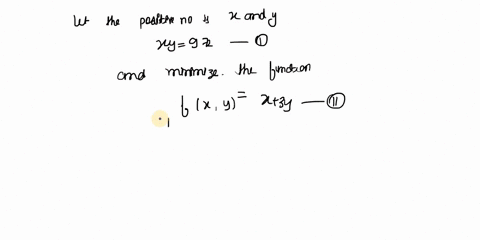 let the positive no is x and y
xy = 92 — ①
and minimize. the function
f (x, y) = x+3y — ②